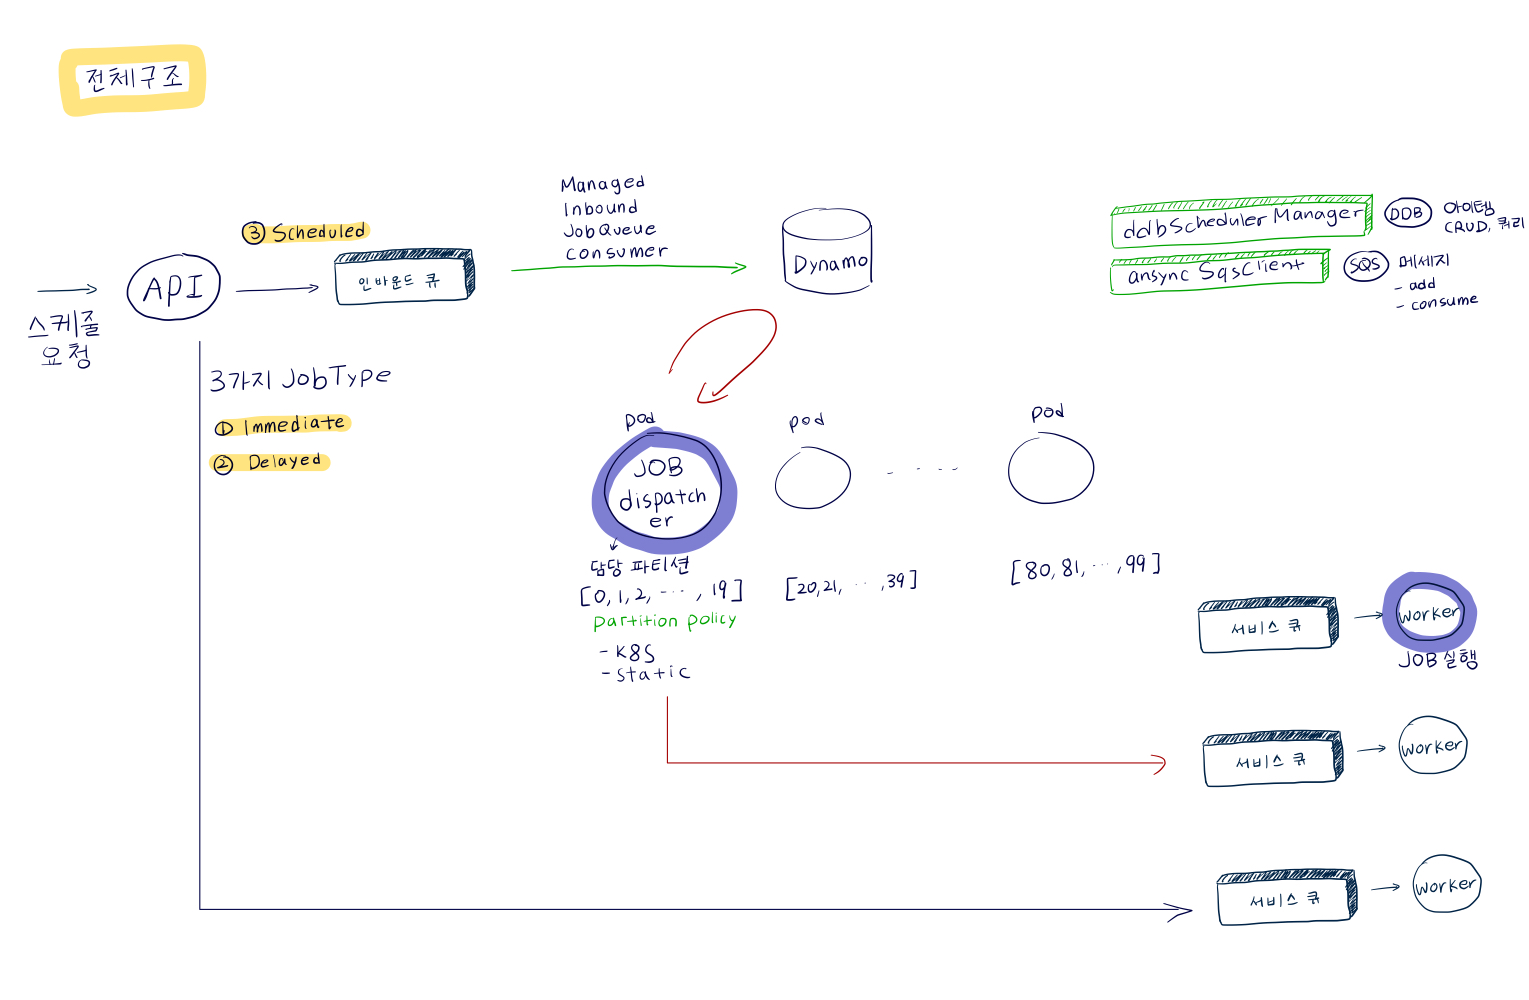 전체구조
③ Scheduled
Managed
Inbound
JobQueue
consumer
ddbScheduler Manager
DDB
아이템
CRUD, 쿼리
ansync SqsClient
SQS
메세지
- add
- consume
API
인바운드 큐
Dynamo
스케줄
요청
3가지 JobType
① Immediate
② Delayed
pod
JOB
dispatch
er
pod
. . . .
pod
담당 파티션
[0, 1, 2, ... , 19]
partition policy
- K8S
- static
[20, 21, ... , 39]
[80, 81, ... , 99]
서비스 큐
worker
JOB 실행
서비스 큐
worker
서비스 큐
worker